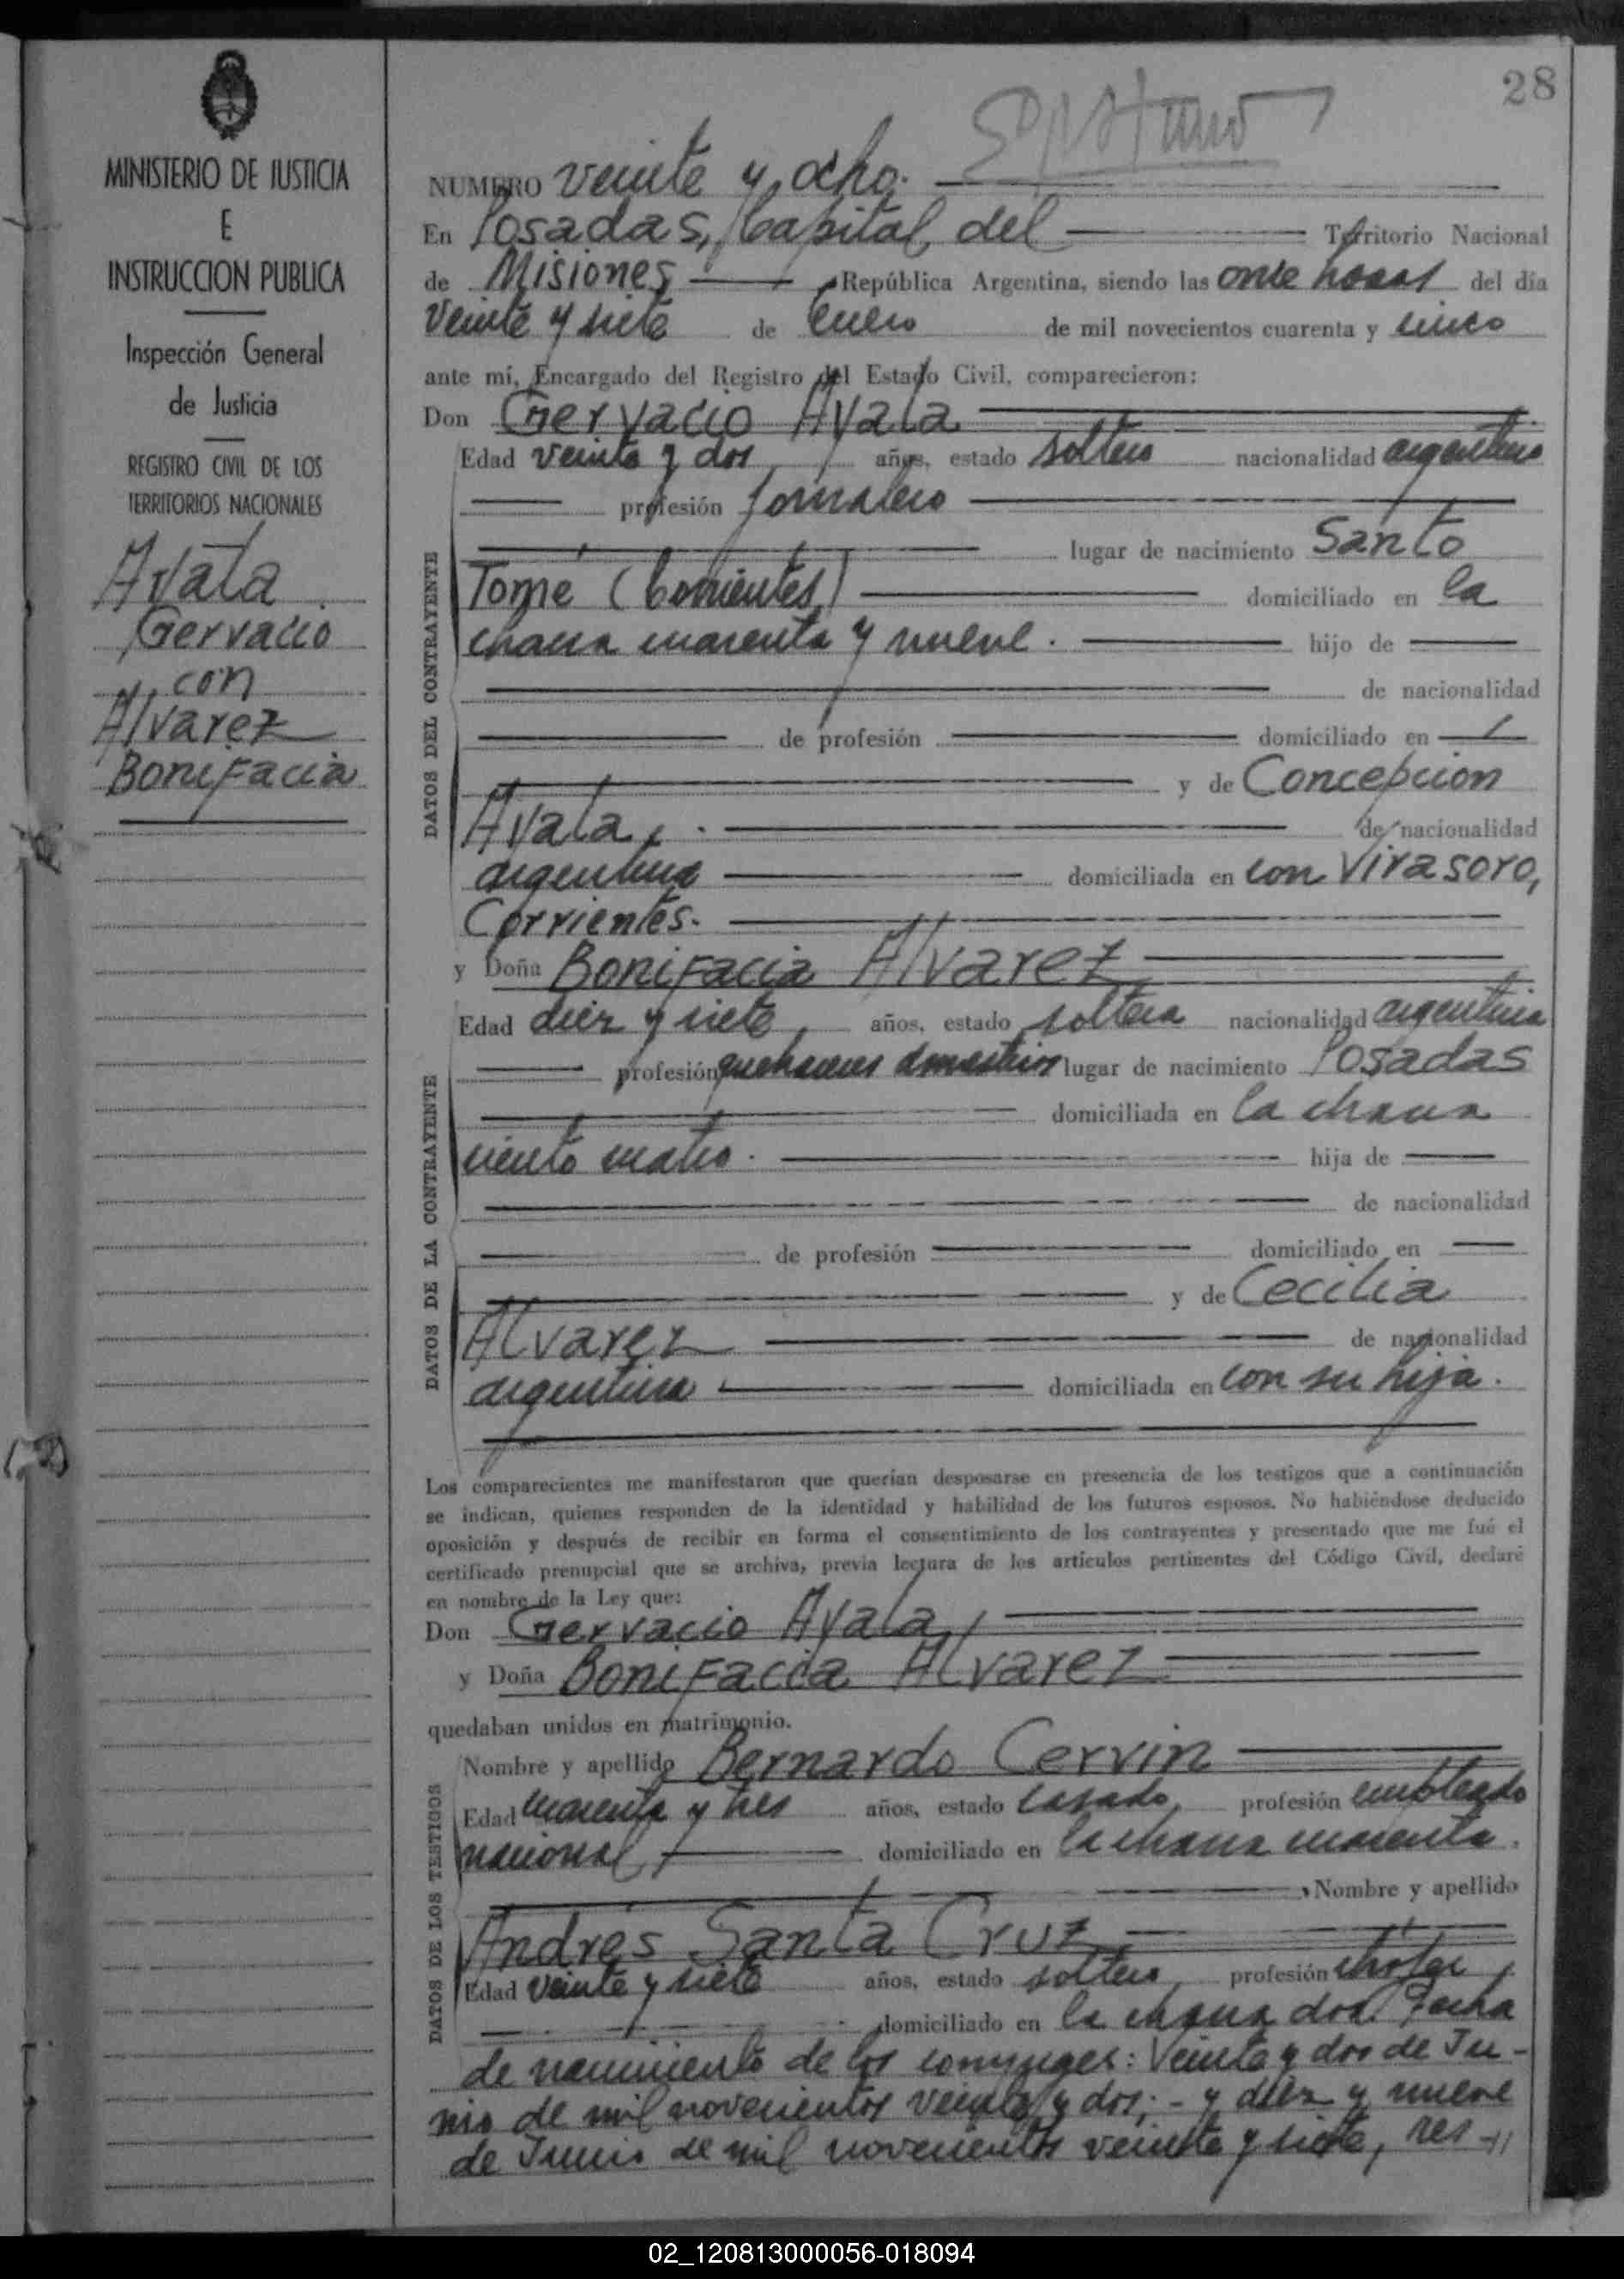 28
MINISTERIO DE JUSTICIA
E
INSTRUCCION PUBLICA
Inspección General
de Justicia
REGISTRO CIVIL DE LOS
TERRITORIOS NACIONALES
Ayala
Gervacio
con
Alvarez
Bonifacia
NUMERO veinte y ocho.
En Posadas, Capital del Territorio Nacional
de Misiones República Argentina, siendo las once horas del día
veinte y siete de Enero de mil novecientos cuarenta y cinco
ante mí, Encargado del Registro del Estado Civil, comparecieron:
Don Gervacio Ayala
DATOS DEL CONTRAYENTE
Edad veinte y dos años, estado soltero nacionalidad argentino
profesión jornalero
lugar de nacimiento Santo
Tomé (Corrientes) domiciliado en la
chacra cuarenta y nueve. hijo de
de nacionalidad
de profesión domiciliado en
y de Concepcion
Ayala, de nacionalidad
argentina domiciliada en con Virasoro,
Corrientes.
y Doña Bonifacia Alvarez
DATOS DE LA CONTRAYENTE
Edad diez y siete, años, estado soltera nacionalidad argentina
profesión quehaceres domésticos lugar de nacimiento Posadas
domiciliada en la chacra
ciento cuatro. hija de
de nacionalidad
de profesión domiciliado en
y de Cecilia
Alvarez de nacionalidad
argentina domiciliada en con su hija.
Los comparecientes me manifestaron que querían desposarse en presencia de los testigos que a continuación
se indican, quienes responden de la identidad y habilidad de los futuros esposos. No habiéndose deducido
oposición y después de recibir en forma el consentimiento de los contrayentes y presentado que me fué el
certificado prenupcial que se archiva, previa lectura de los artículos pertinentes del Código Civil, declaré
en nombre de la Ley que:
Don Gervacio Ayala,
y Doña Bonifacia Alvarez
quedaban unidos en matrimonio.
DATOS DE LOS TESTIGOS
Nombre y apellido Bernardo Cervin
Edad cuarenta y tres años, estado casado, profesión empleado
nacional, domiciliado en la chacra cuarenta.
Nombre y apellido
Andrés Santa Cruz
Edad veinte y siete años, estado soltero, profesión chofer,
domiciliado en la chacra dos. Fecha
de nacimiento de los conyuges: Veinte y dos de Ju-
nio de mil novecientos veinte y dos; - y diez y nueve
de Junio de mil novecientos veinte y siete, res-//
02_120813000056-018094